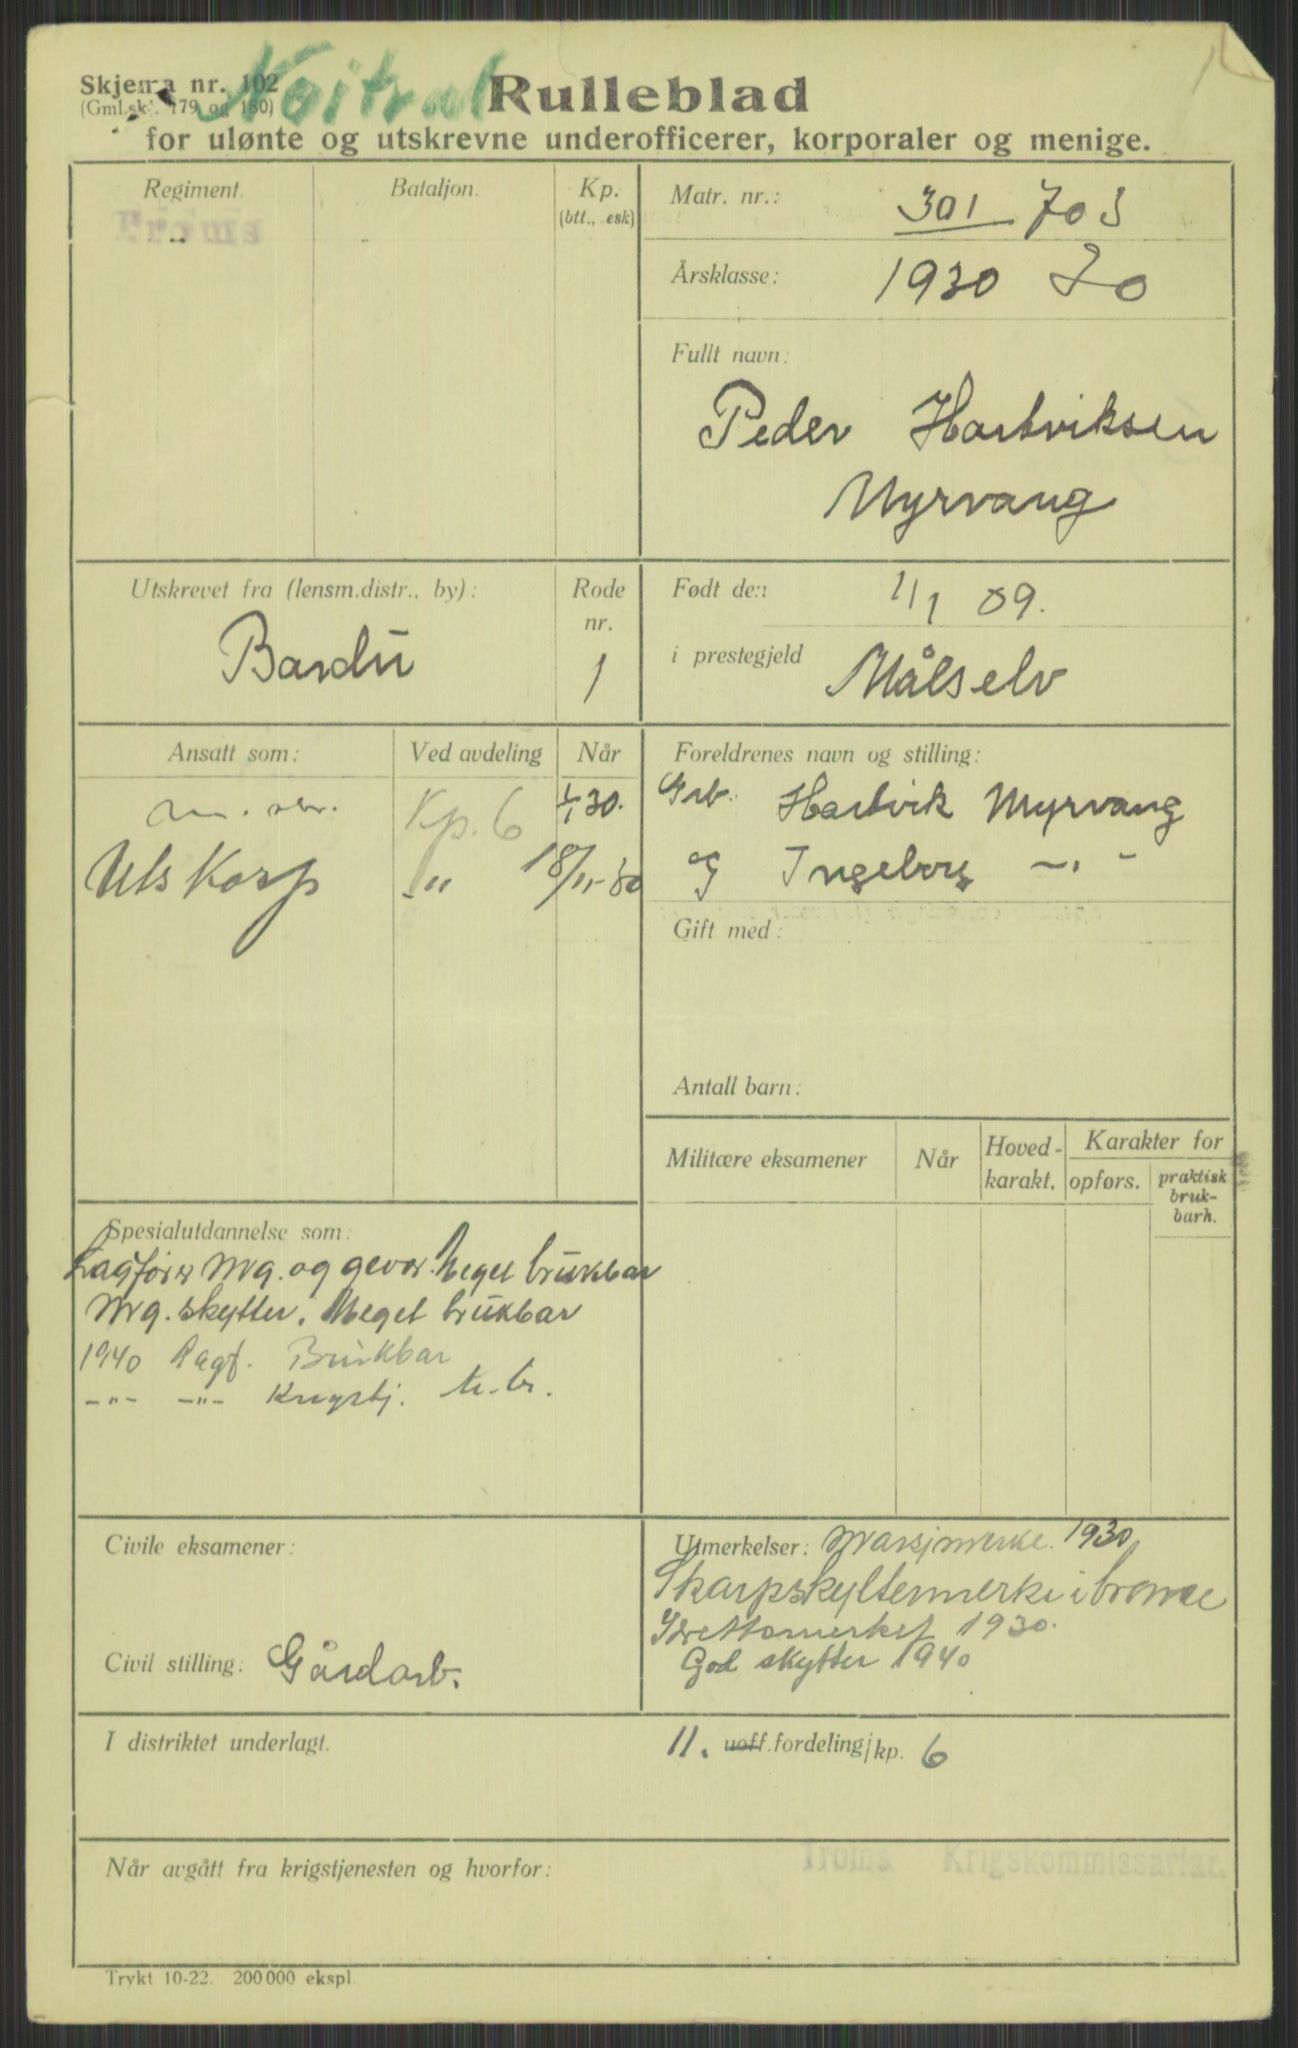 Nøitral
Skjema nr. 102
(Gml.skj. 179 og 180)
Rulleblad
for ulønte og utskrevne underofficerer, korporaler og menige.
Regiment. Bataljon. Kp.
(btt., esk)
Troms
Matr. nr.: 301 703
Årsklasse: 1930 70
Fullt navn:
Peder Hartviksen
Myrvang
Utskrevet fra (lensm.distr., by): Rode
nr.
Bardu 1
Født den 1/1 09.
i prestegjeld Målselv
Ansatt som: Ved avdeling Når
Kp. 6 1/1 30.
Uts Korp -"- 18/11-30
Foreldrenes navn og stilling:
Grb. Hartvik Myrvang
og Ingeborg -"-
Gift med:
Antall barn:
Militære eksamener Når Hoved-
karakt. Karakter for
opførs. praktisk
bruk-
barh.
Spesialutdannelse som:
Lagfører Mg. og gevær. Meget brukbar
Mg. skytter. Meget brukbar
1940 Lagf. Brukbar
-"- -"- Krigstj. M. br.
Civile eksamener:
Civil stilling: Gårdarb.
Utmerkelser: Marsjmerke 1930
Skarpskyttermerke i bronse
Idrettsmerket 1930.
God skytter 1940
I distriktet underlagt. 11. uoff.fordeling/kp. 6
Når avgått fra krigstjenesten og hvorfor:
Troms Krigskommissariat.
Trykt 10-22. 200 000 ekspl.